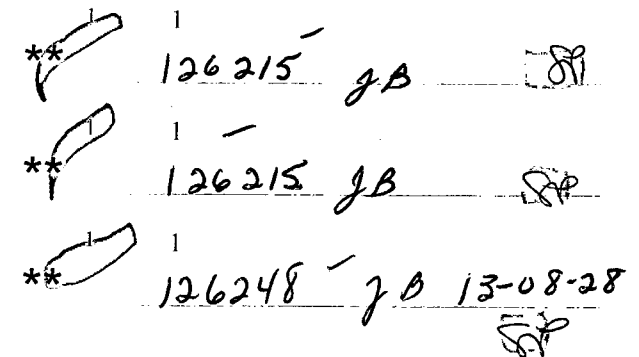 1 1
** 126215 JB
1 1
** 126215 JB
1 1
** 126248 JB 13-08-28